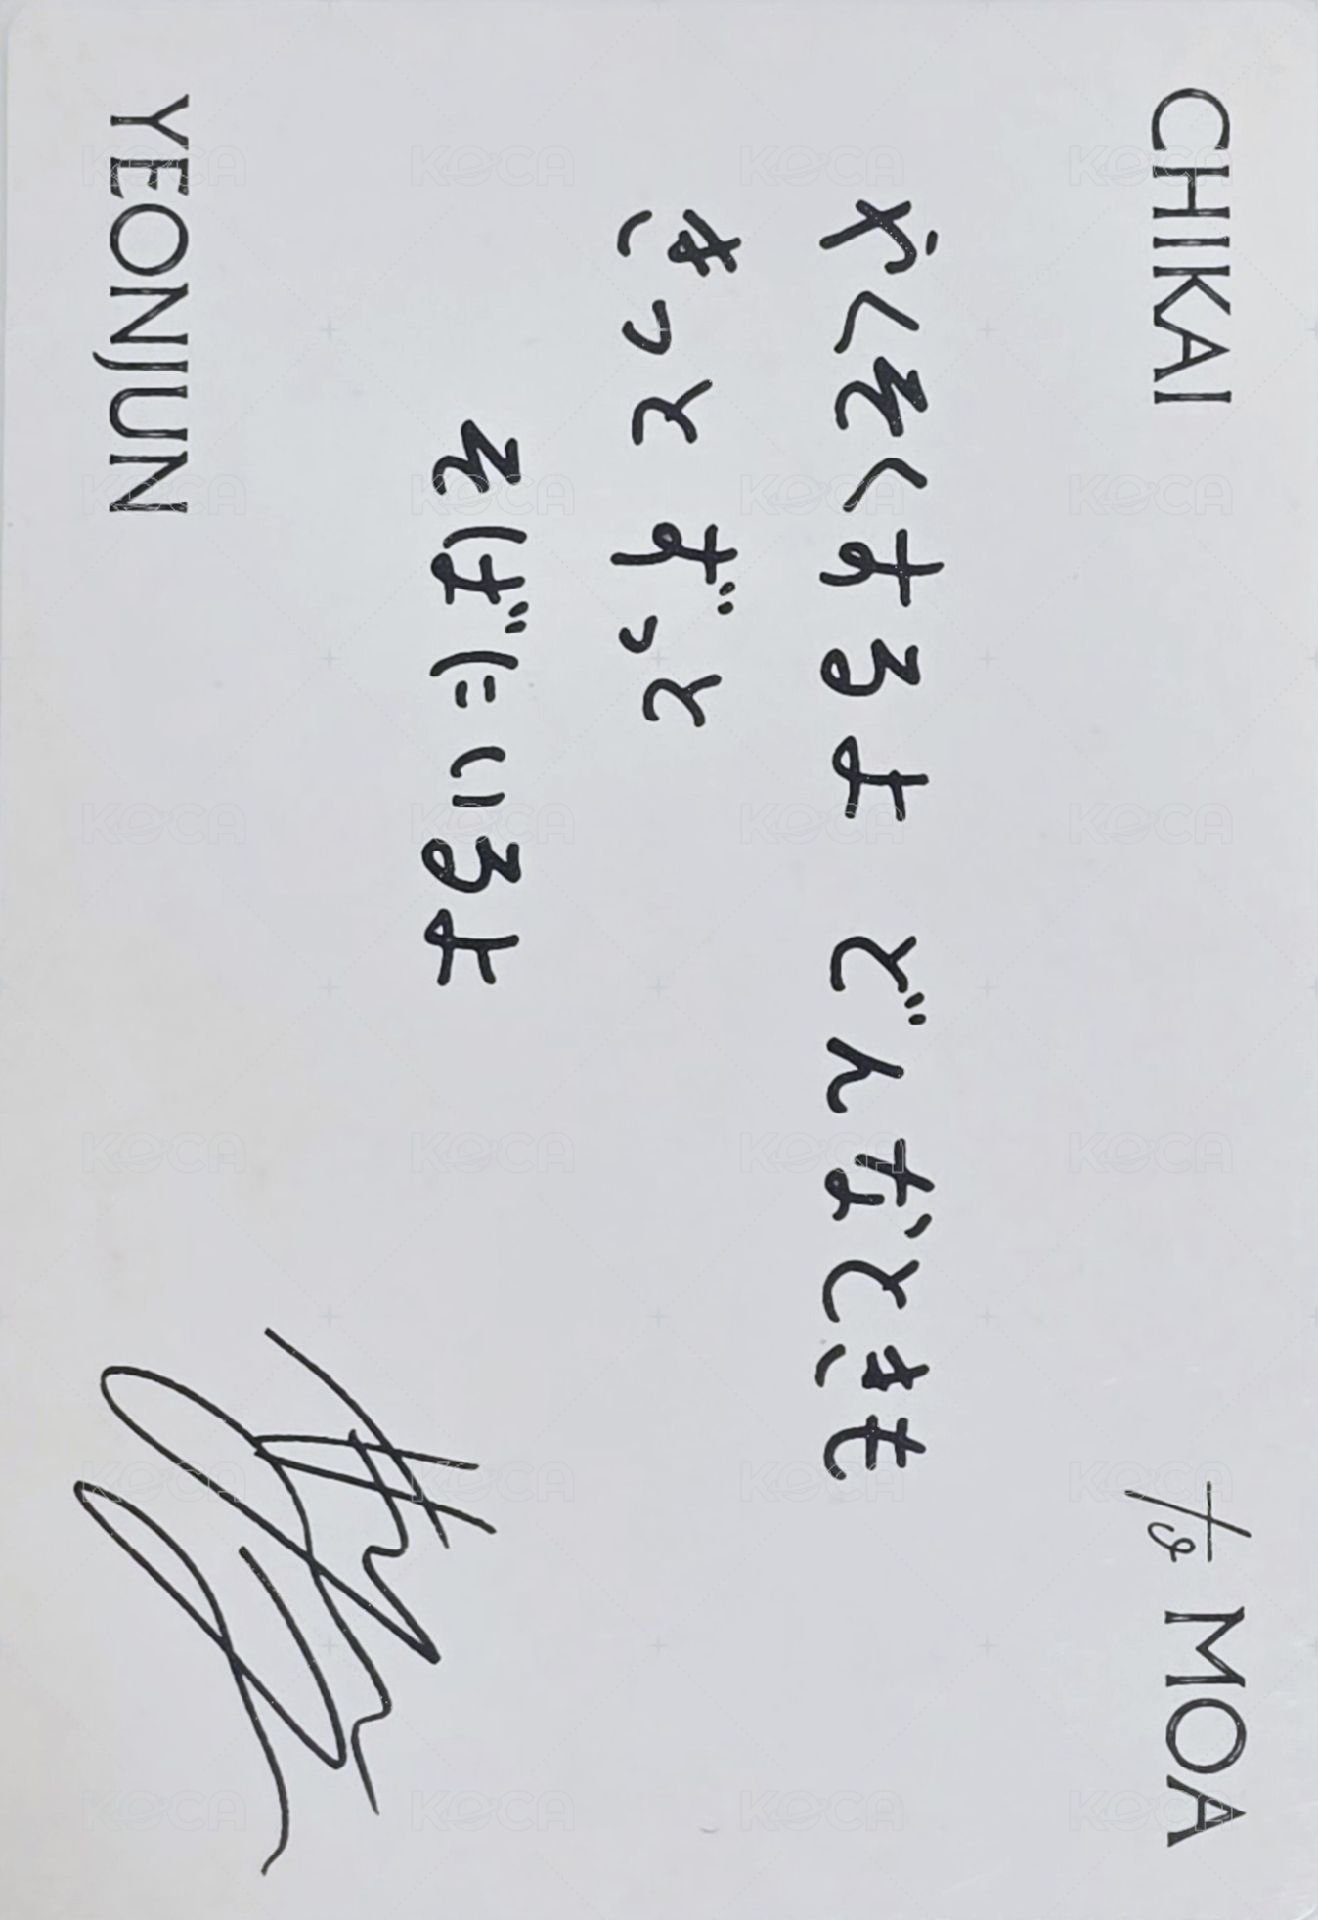 CHIKAI
To MOA
やくそくするよ どんなときも
きっと ずっと
そばにいるよ
YEONJUN